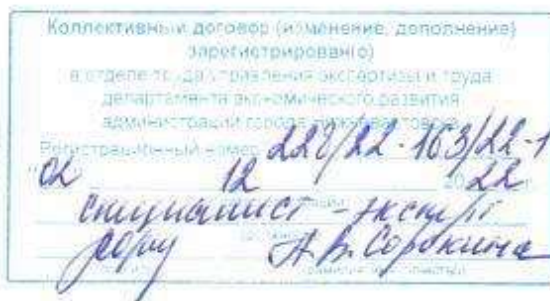 Коллективный договор (изменение, дополнение)
зарегистрирован(о)
в отделе труда управления экспертизы и труда
департамента экономического развития
администрации города Нижневартовска
Регистрационный номер 228/22-163/22-1
"02 12 2022 г.
специалист-эксперт
А.В. Сорокина